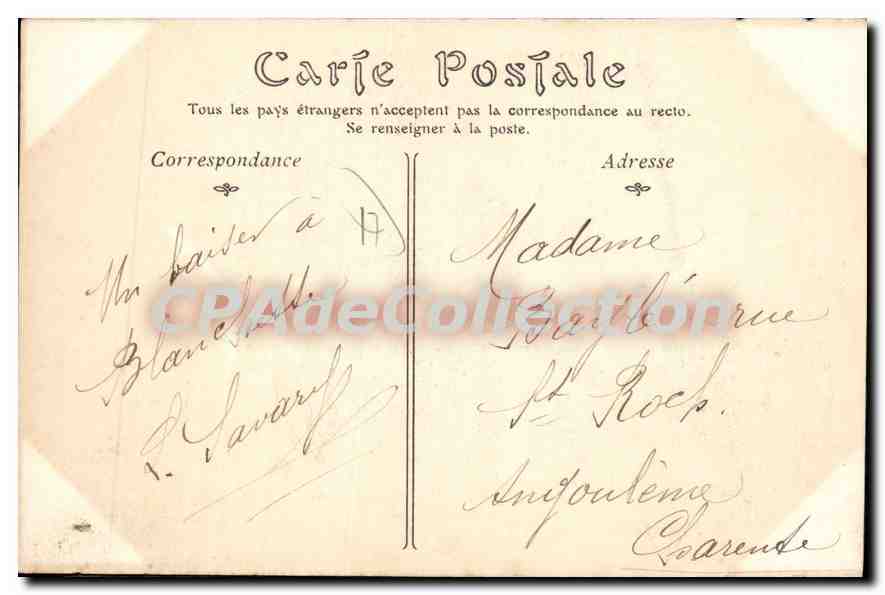 Carte Postale
Tous les pays étrangers n'acceptent pas la correspondance au recto.
Se renseigner à la poste.
Correspondance
Adresse
17
Un baiser à
Blanchette
L. Savary
Madame
Baylé rue
St Roch.
Angoulême
Charente
CPAdeCollection.com